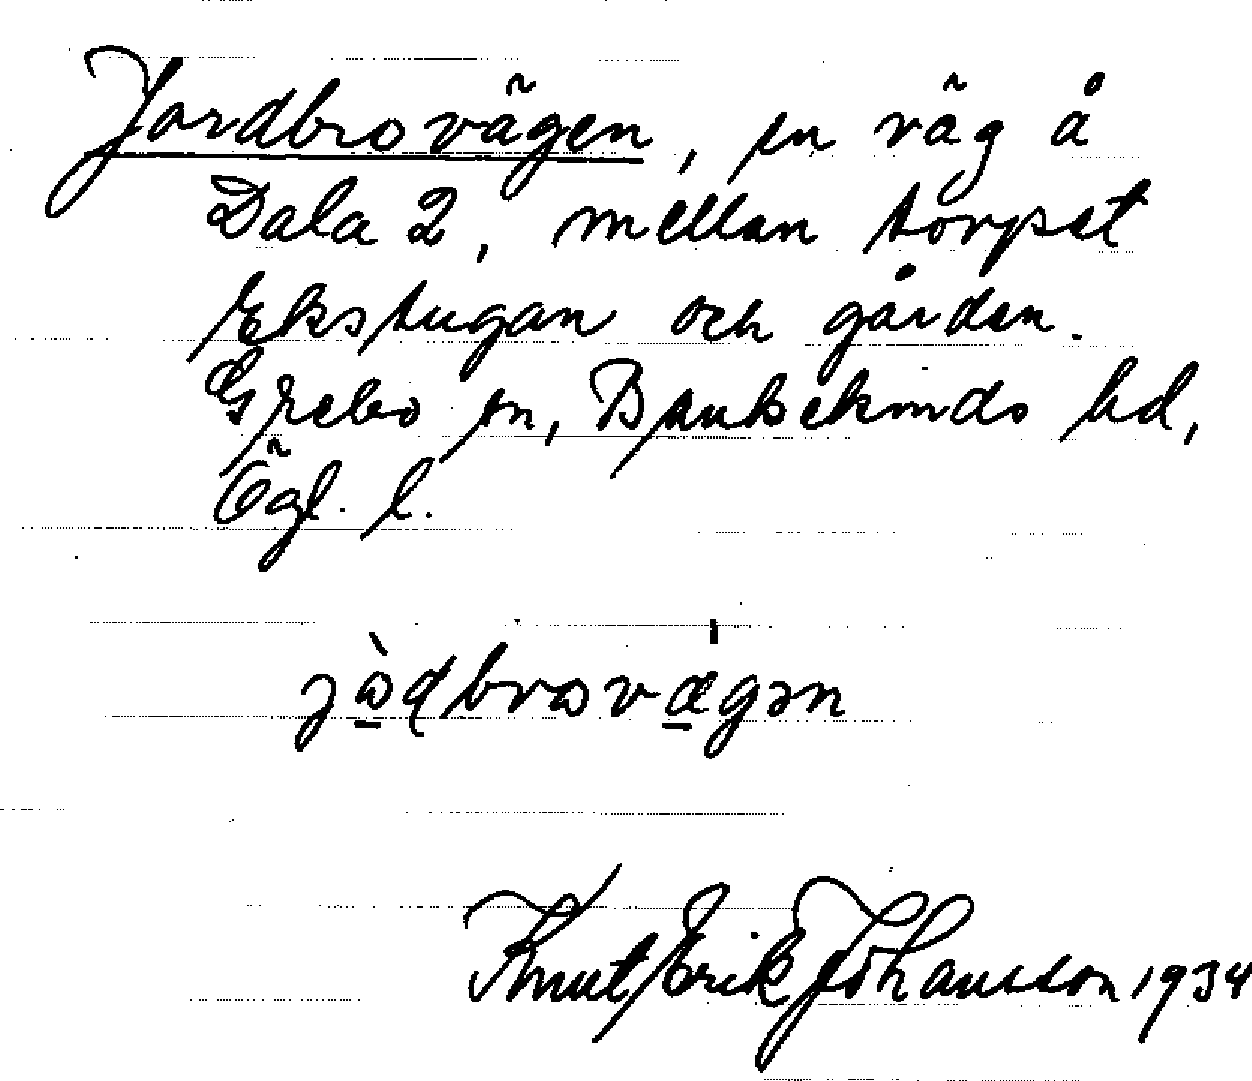 Jordbrovägen, en väg å
Dala 2, mellan torpet
Ekstugan och gården.
Grebo sn, Bankekinds hd,
Ögl. l.
jòdbrovægən
Knut Erik Johansson 1934